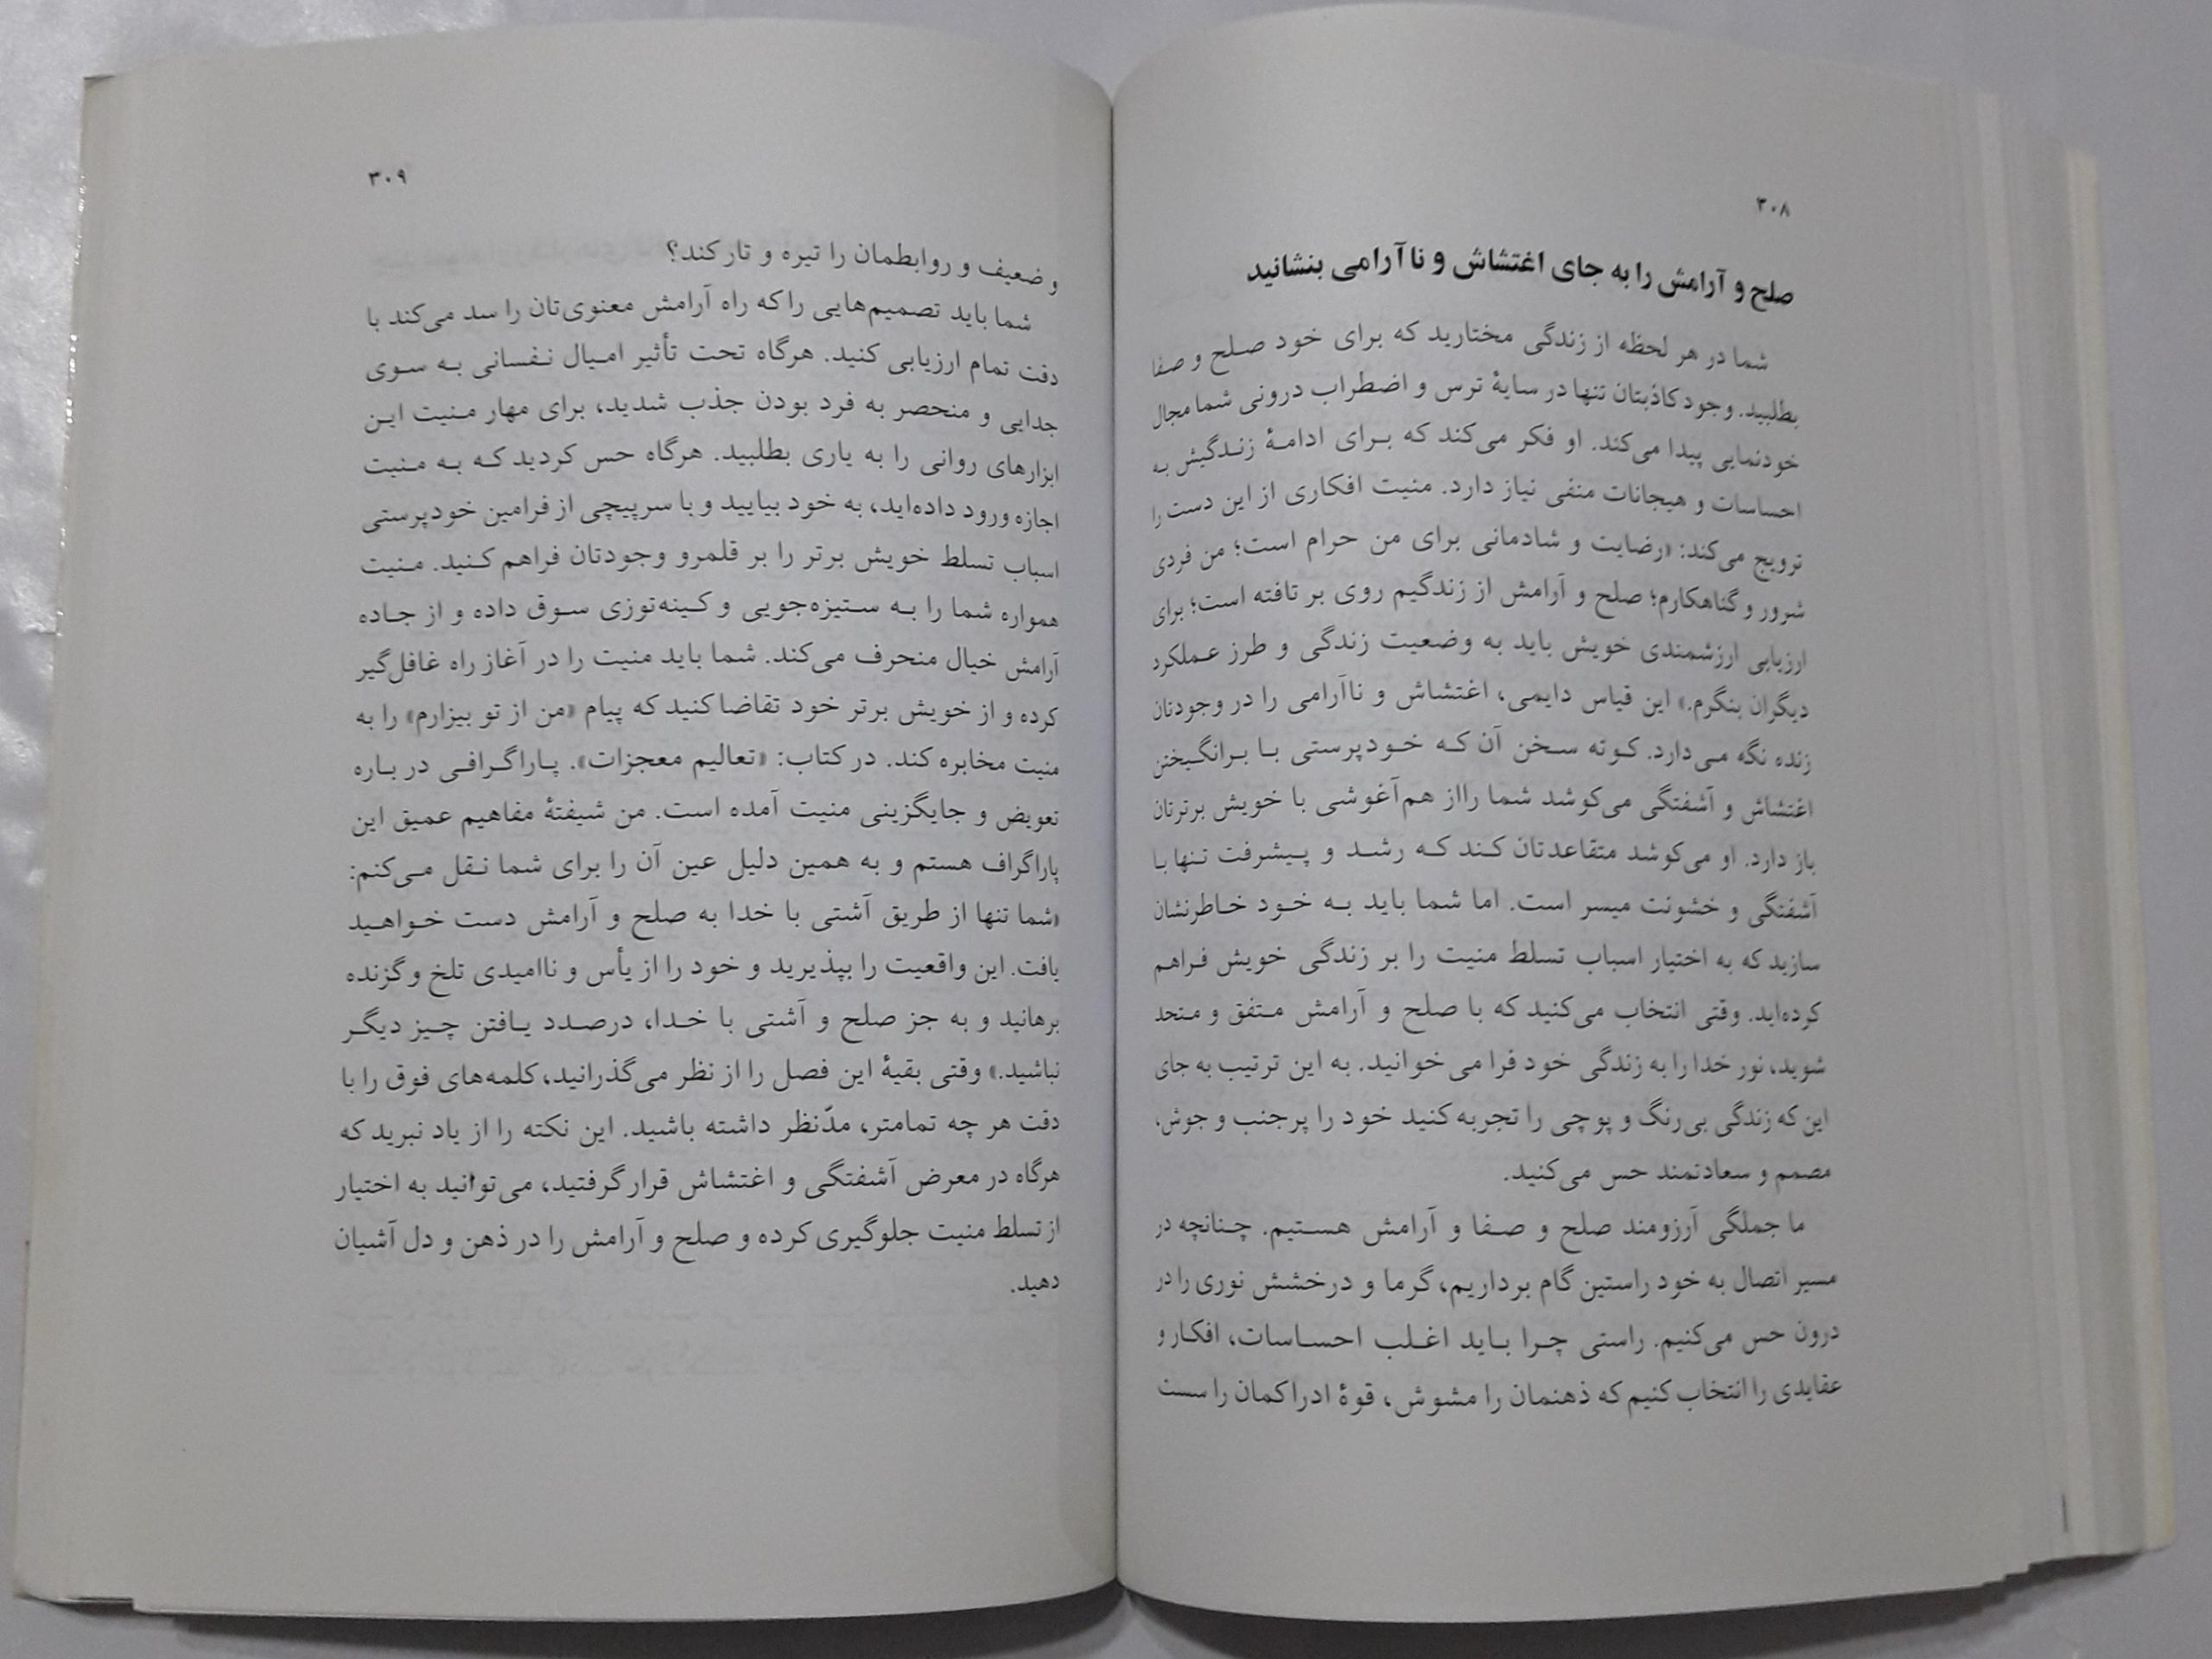 ۳۰۸
صلح و آرامش را به جای اغتشاش و ناآرامی بنشانید
شما در هر لحظه از زندگی مختارید که برای خود صلح و صفا
بطلبید. وجود کاذبتان تنها در سایهٔ ترس و اضطراب درونی شما مجال
خودنمایی پیدا می‌کند. او فکر می‌کند که برای ادامهٔ زندگیش به
احساسات و هیجانات منفی نیاز دارد. منیت افکاری از این دست را
ترویج می‌کند: «رضایت و شادمانی برای من حرام است؛ من فردی
شرور و گناهکارم؛ صلح و آرامش از زندگیم روی بر تافته است؛ برای
ارزیابی ارزشمندی خویش باید به وضعیت زندگی و طرز عملکرد
دیگران بنگرم.» این قیاس دایمی، اغتشاش و ناآرامی را در وجودتان
زنده نگه می‌دارد. کوته سخن آن که خودپرستی با برانگیختن
اغتشاش و آشفتگی می‌کوشد شما رااز هم‌آغوشی با خویش برترتان
باز دارد. او می‌کوشد متقاعدتان کند که رشد و پیشرفت تنها با
آشفتگی و خشونت میسر است. اما شما باید به خود خاطرنشان
سازید که به اختیار اسباب تسلط منیت را بر زندگی خویش فراهم
کرده‌اید. وقتی انتخاب می‌کنید که با صلح و آرامش متفق و متحد
شوید، نور خدا را به زندگی خود فرا می‌خوانید. به این ترتیب به جای
این که زندگی بی‌رنگ و پوچی را تجربه کنید خود را پرجنب و جوش،
مصمم و سعادتمند حس می‌کنید.
ما جملگی آرزومند صلح و صفا و آرامش هستیم. چنانچه در
مسیر اتصال به خود راستین گام برداریم، گرما و درخشش نوری را در
درون حس می‌کنیم. راستی چرا باید اغلب احساسات، افکار و
عقایدی را انتخاب کنیم که ذهنمان را مشوش، قوهٔ ادراکمان را سست
۳۰۹
و ضعیف و روابطمان را تیره و تار کند؟
شما باید تصمیم‌هایی را که راه آرامش معنوی‌تان را سد می‌کند با
دقت تمام ارزیابی کنید. هرگاه تحت تأثیر امیال نفسانی به سوی
جدایی و منحصر به فرد بودن جذب شدید، برای مهار منیت این
ابزارهای روانی را به یاری بطلبید. هرگاه حس کردید که به منیت
اجازه ورود داده‌اید، به خود بیایید و با سرپیچی از فرامین خودپرستی
اسباب تسلط خویش برتر را بر قلمرو وجودتان فراهم کنید. منیت
همواره شما را به ستیزه‌جویی و کینه‌توزی سوق داده و از جاده
آرامش خیال منحرف می‌کند. شما باید منیت را در آغاز راه غافل‌گیر
کرده و از خویش برتر خود تقاضا کنید که پیام «من از تو بیزارم» را به
منیت مخابره کند. در کتاب: «تعالیم معجزات». پاراگرافی در باره
تعویض و جایگزینی منیت آمده است. من شیفتهٔ مفاهیم عمیق این
پاراگراف هستم و به همین دلیل عین آن را برای شما نقل می‌کنم:
«شما تنها از طریق آشتی با خدا به صلح و آرامش دست خواهید
یافت. این واقعیت را بپذیرید و خود را از یأس و ناامیدی تلخ و گزنده
برهانید و به جز صلح و آشتی با خدا، درصدد یافتن چیز دیگر
نباشید.» وقتی بقیهٔ این فصل را از نظر می‌گذرانید، کلمه‌های فوق را با
دقت هر چه تمامتر، مدّنظر داشته باشید. این نکته را از یاد نبرید که
هرگاه در معرض آشفتگی و اغتشاش قرار گرفتید، می‌توانید به اختیار
از تسلط منیت جلوگیری کرده و صلح و آرامش را در ذهن و دل آشیان
دهید.